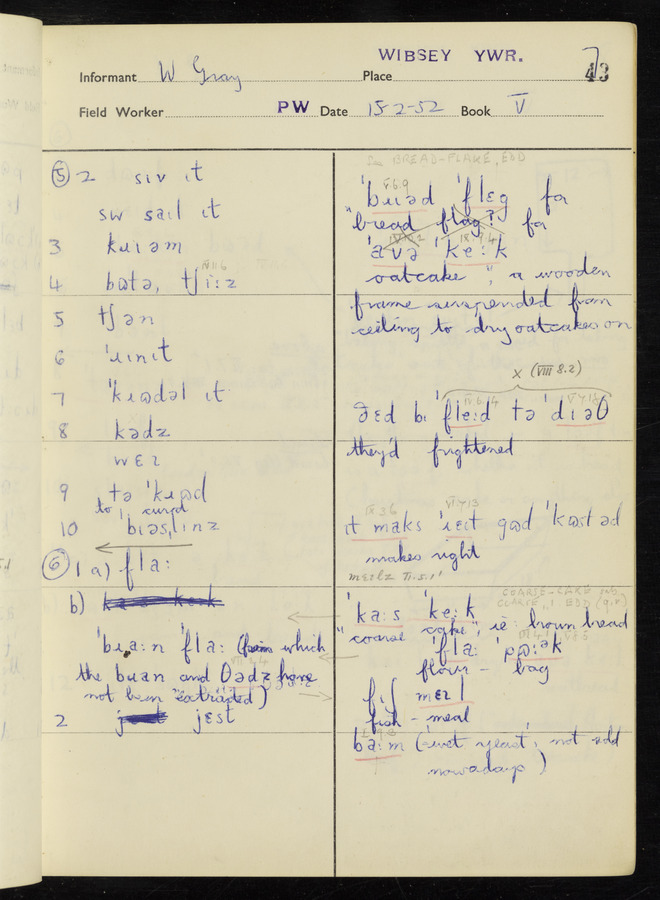 WIBSEY YWR.
Informant W Gray Place 43
7
Field Worker PW Date 15-2-52 Book V
⑤ 2 sɪv ɪt
sw saɪl ɪt
3 kɹɪəm
VII 6
4 bʊtə, tʃi:z
5 tʃən
6 'ɹɪnɪt
7 'kɹʊdəl ɪt
8 kədz
wɛɪ
9 tə 'kɹʊd
to curd
10 'bɪəslɪnz
⑥ 1 a) fla:
b)
'bɹa:n 'fla: (from which
the bran and θədz have
not been "extracted")
2 jɛst
BREAD-FLAKE, EDD
V.6.9
'bɹɪəd 'flɛg fə
"bread flag? for
'avə 'ke:k
oatcake", a wooden
frame suspended from
ceiling to dry oatcakes on
x (VIII 8.2)
ðɛd bɪ fle:d tə 'dɪəθ
they'd frightened
ɪt maks 'ɹɛɪt gʊd 'kʊstəd
makes right
'ka:s 'ke:k
COARSE-CAKE
COARSE, 1. EDD
"coarse cake", ie brown bread
'fla: 'pʊə:k
flour – bag
fɪʃ mɛɪl
fish – meal
ba:m (sweet yeast, not sold
nowadays)